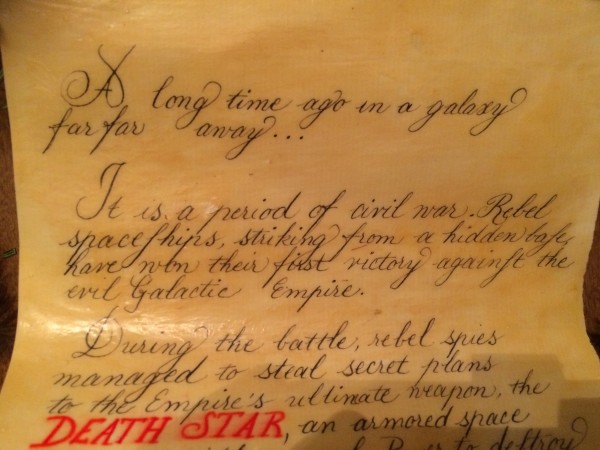 A long time ago in a galaxy
far far away...
It is a period of civil war. Rebel
spaceſhips, striking from a hidden baſe,
have won their firſt victory againſt the
evil Galactic Empire.
During the battle, rebel spies
managed to steal secret plans
to the Empire's ultimate weapon, the
DEATH STAR, an armored space
to deſtroy